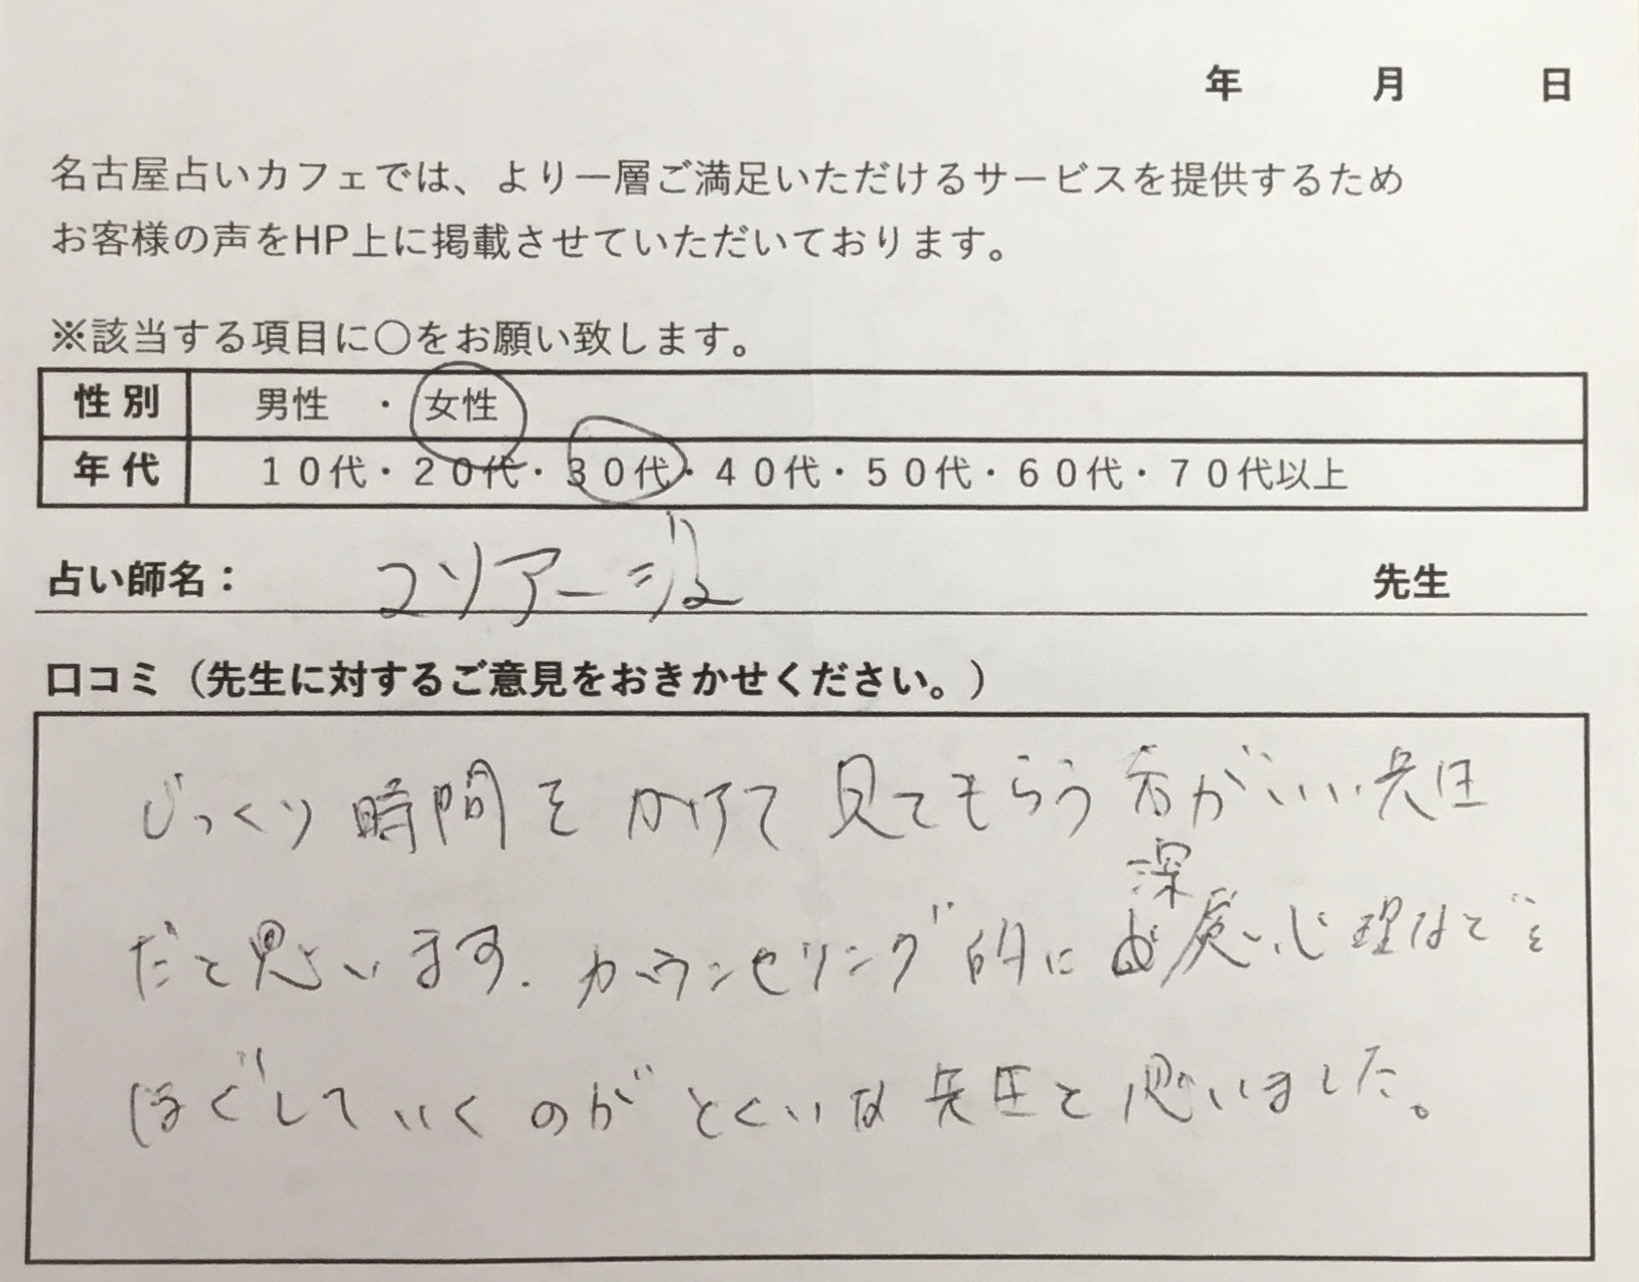 年 月 日
名古屋占いカフェでは、より一層ご満足いただけるサービスを提供するため
お客様の声をHP上に掲載させていただいております。
※該当する項目に〇をお願い致します。
性別 男性 ・ 女性
年代 10代・20代・30代・40代・50代・60代・70代以上
占い師名: 先生
口コミ(先生に対するご意見をおきかせください。)
じっくり時間をかけて見てもらう方がいい先生
だと思います。カウンセリング的に深層心理などを
ほぐしていくのがとくいな先生と思いました。